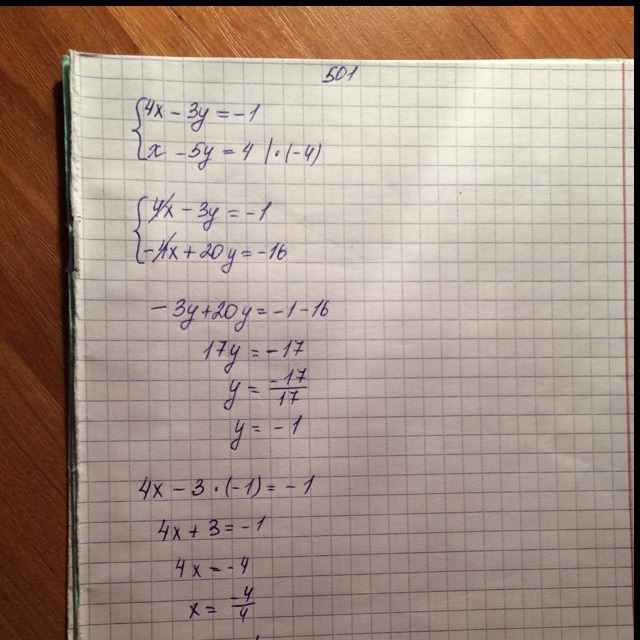 501
4x - 3y = -1
x - 5y = 4 | · (-4)
4x - 3y = -1
-4x + 20y = -16
-3y + 20y = -1 - 16
17y = -17
y = -17/17
y = -1
4x - 3 · (-1) = -1
4x + 3 = -1
4x = -4
x = -4/4